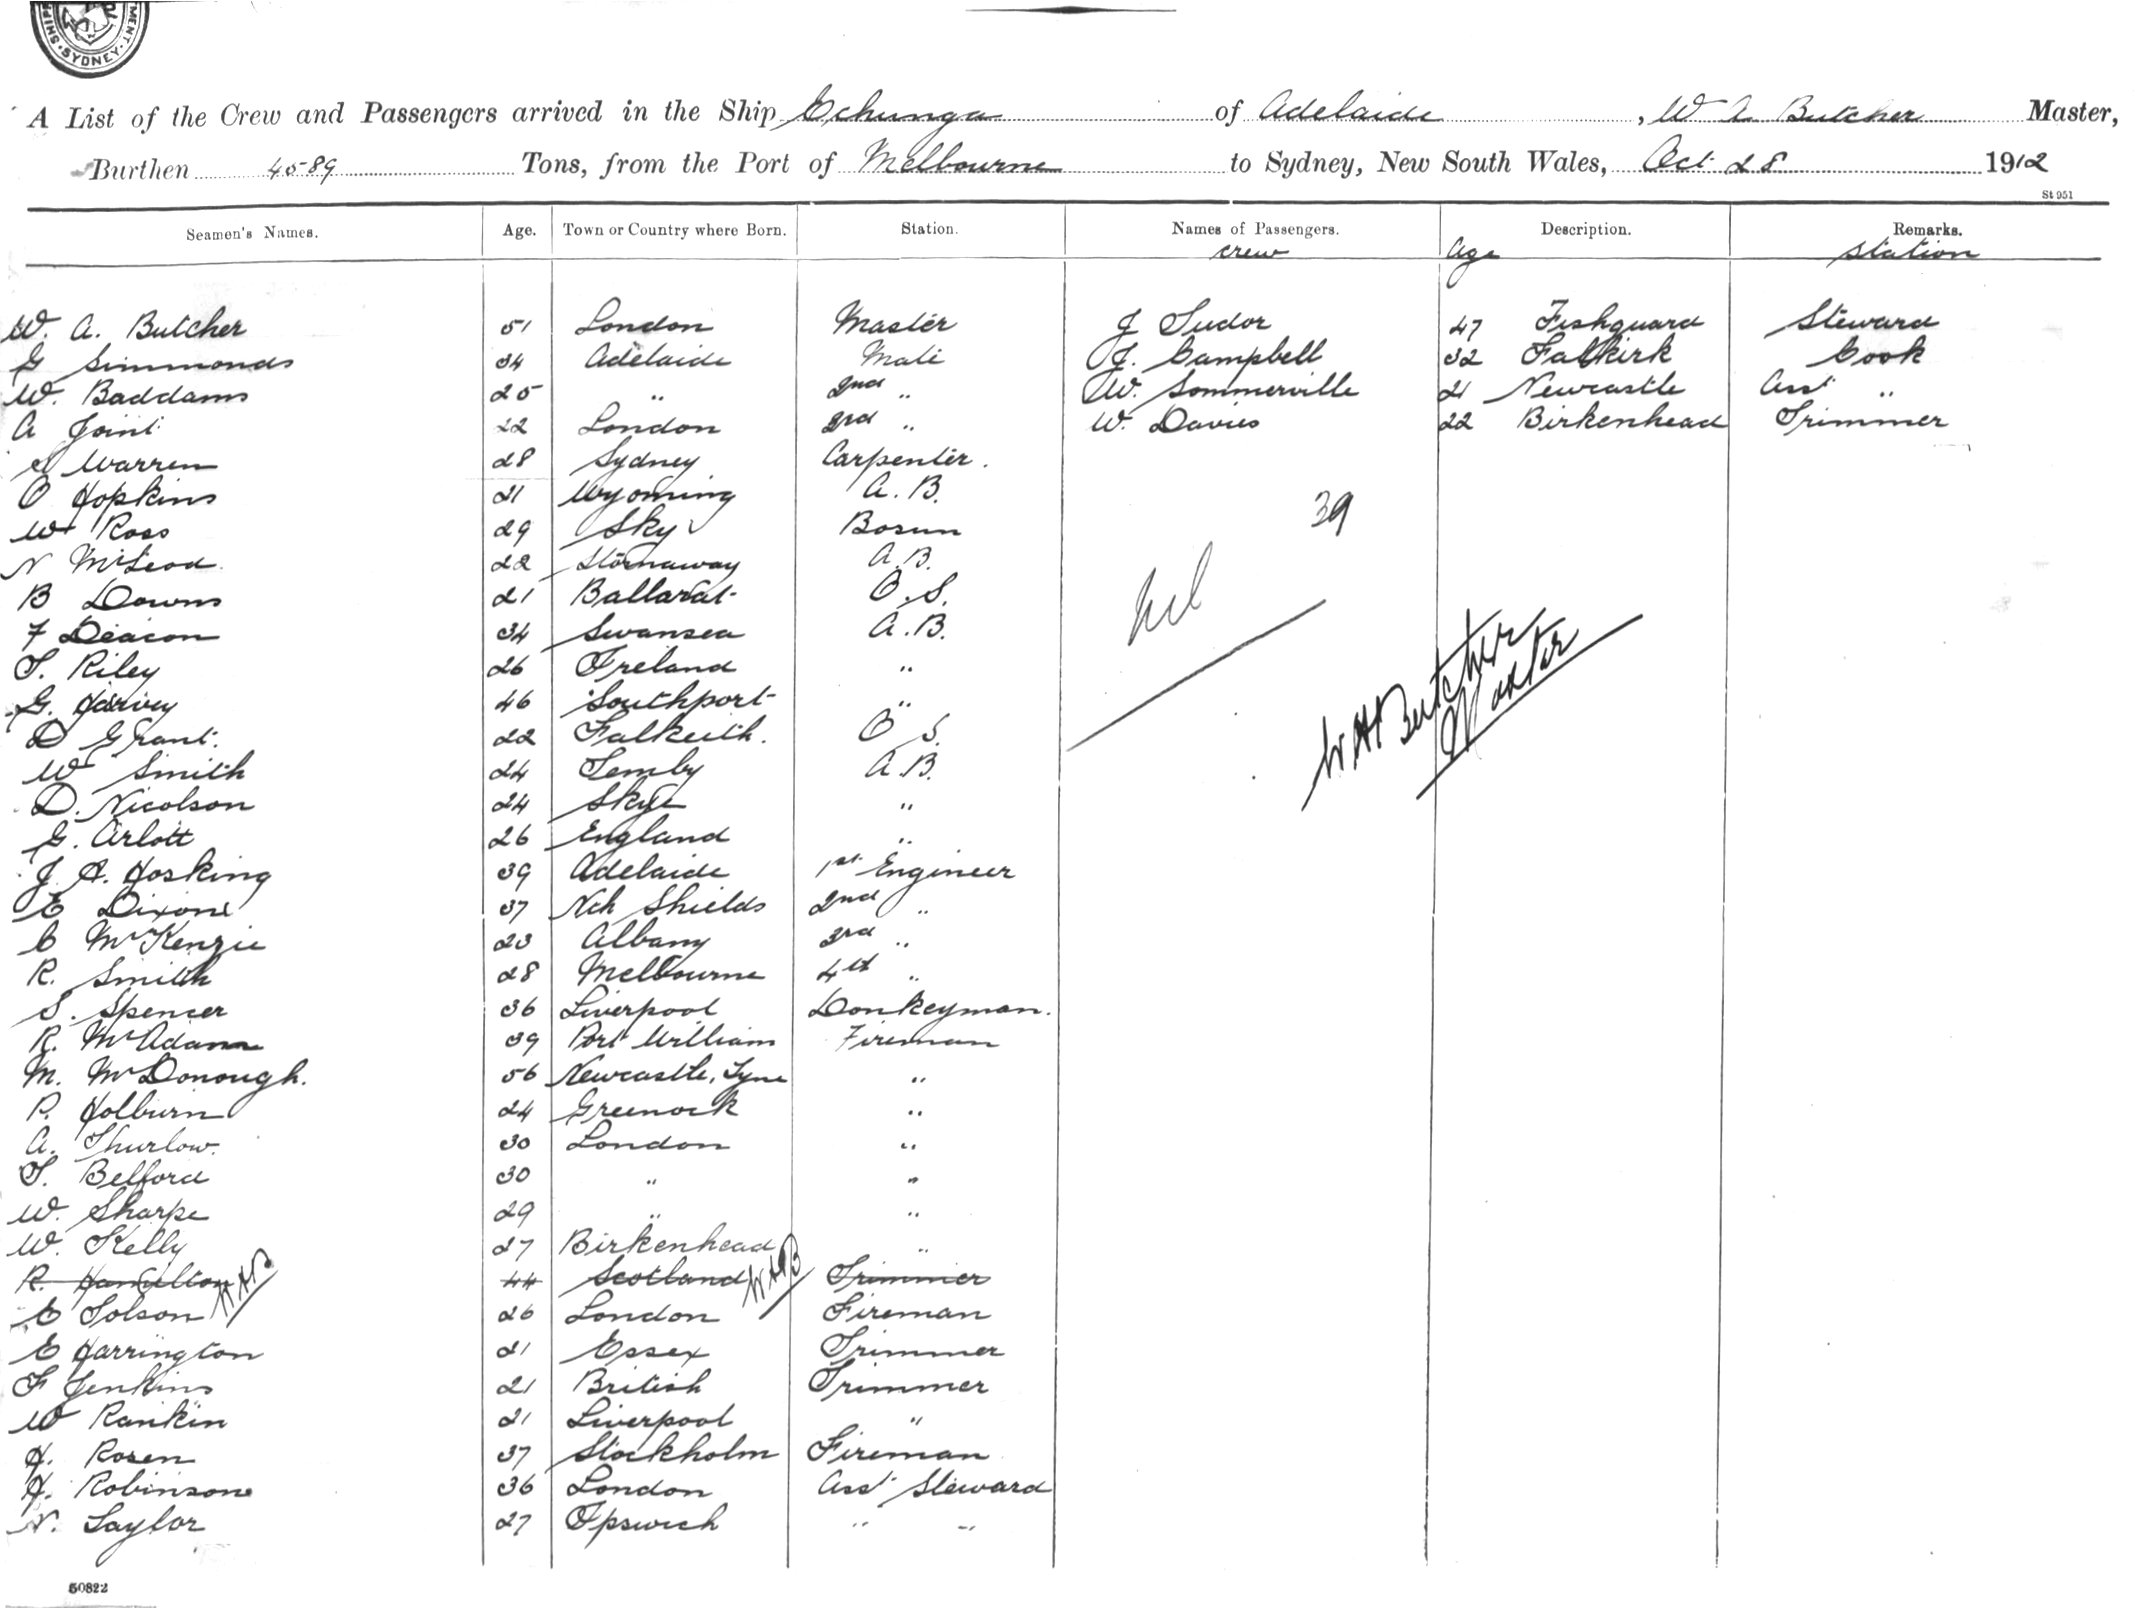 SYDNEY
A List of the Crew and Passengers arrived in the Ship Echunga of Adelaide, W A Butcher Master,
Burthen 4589 Tons, from the Port of Melbourne to Sydney, New South Wales, Oct 28 1912
St 951
Seamen's Names. Age. Town or Country where Born. Station. Names of Passengers. Description. Remarks.
crew Age Station
W. A. Butcher 51 London Master J Tudor 47 Fishguard Steward
G Simmonds 34 Adelaide Mate J. Campbell 32 Falkirk Cook
W. Baddams 25 " 2nd " W. Sommerville 21 Newcastle Asst "
A Joint 22 London 3rd " W. Davies 22 Birkenhead Trimmer
S Warren 28 Sydney Carpenter.
O Hopkins 21 Wyoming A. B.
39
W Ross 29 Sky Bosun
N McLeod. 22 Stornaway A. B.
B Downs 21 Ballarat O. S.
Nil
F Deacon 34 Swansea A. B.
T. Riley 26 Ireland "
G. Harvey 46 Southport "
W A Butcher
Master
D Grant. 22 Falkeith. O S.
W Smith 24 Temby A. B.
D. Nicolson 24 Skye "
G. Arlott 26 England "
J. A. Hosking 39 Adelaide 1st Engineer
E Dixon 37 Nth Shields 2nd "
C McKenzie 23 Albany 3rd "
R. Smith 28 Melbourne 4th "
S. Spencer 36 Liverpool Donkeyman.
R. McAdam 39 Port William Fireman
M. McDonough. 56 Newcastle, Tyne "
P. Holburn 24 Greenock "
A. Thurlow. 30 London "
T. Belford 30 " "
W. Sharpe 29 " "
W. Kelly 27 Birkenhead "
R. Hamilton WAB 44 Scotland WAB Trimmer
C Tolson 26 London Fireman
E Harrington 21 Essex Trimmer
F Jenkins 21 British Trimmer
W Rankin 21 Liverpool "
H. Rosen 37 Stockholm Fireman
H. Robinson 36 London Asst Steward
N. Taylor 27 Ipswich " "
50822